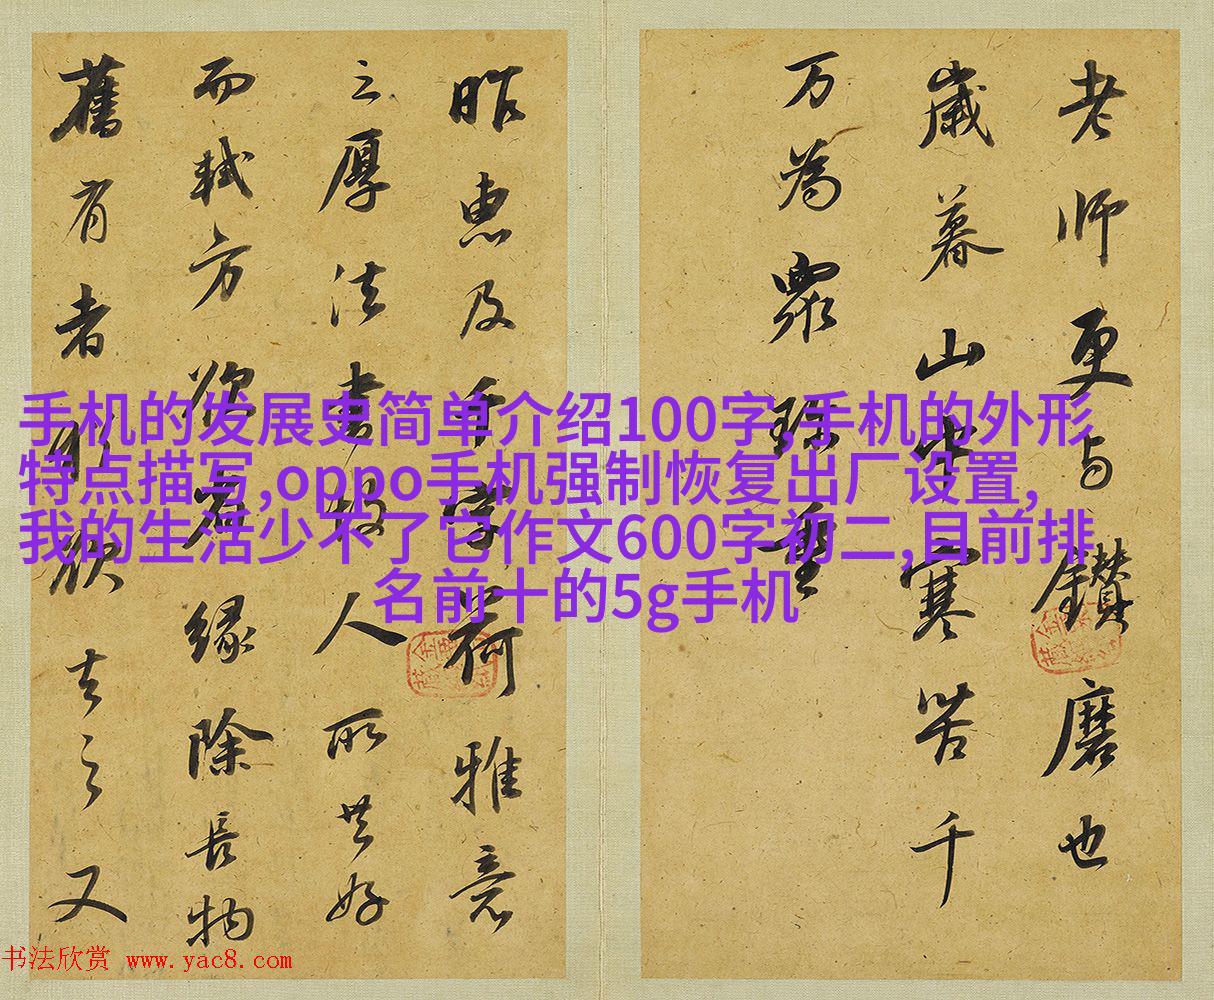 老師更与鑽磨也
歲暮山中寒苦千
万為眾珎重
昨惠及千字荷雅意
之厚法書人所共好
而軾方欲緣除長物
舊有者欲去之又
手机的发展史简单介绍100字,手机的外形
特点描写,oppo手机强制恢复出厂设置,
我的生活少不了它作文600字初二,目前排
名前十的5g手机
书法欣赏 www.yac8.com